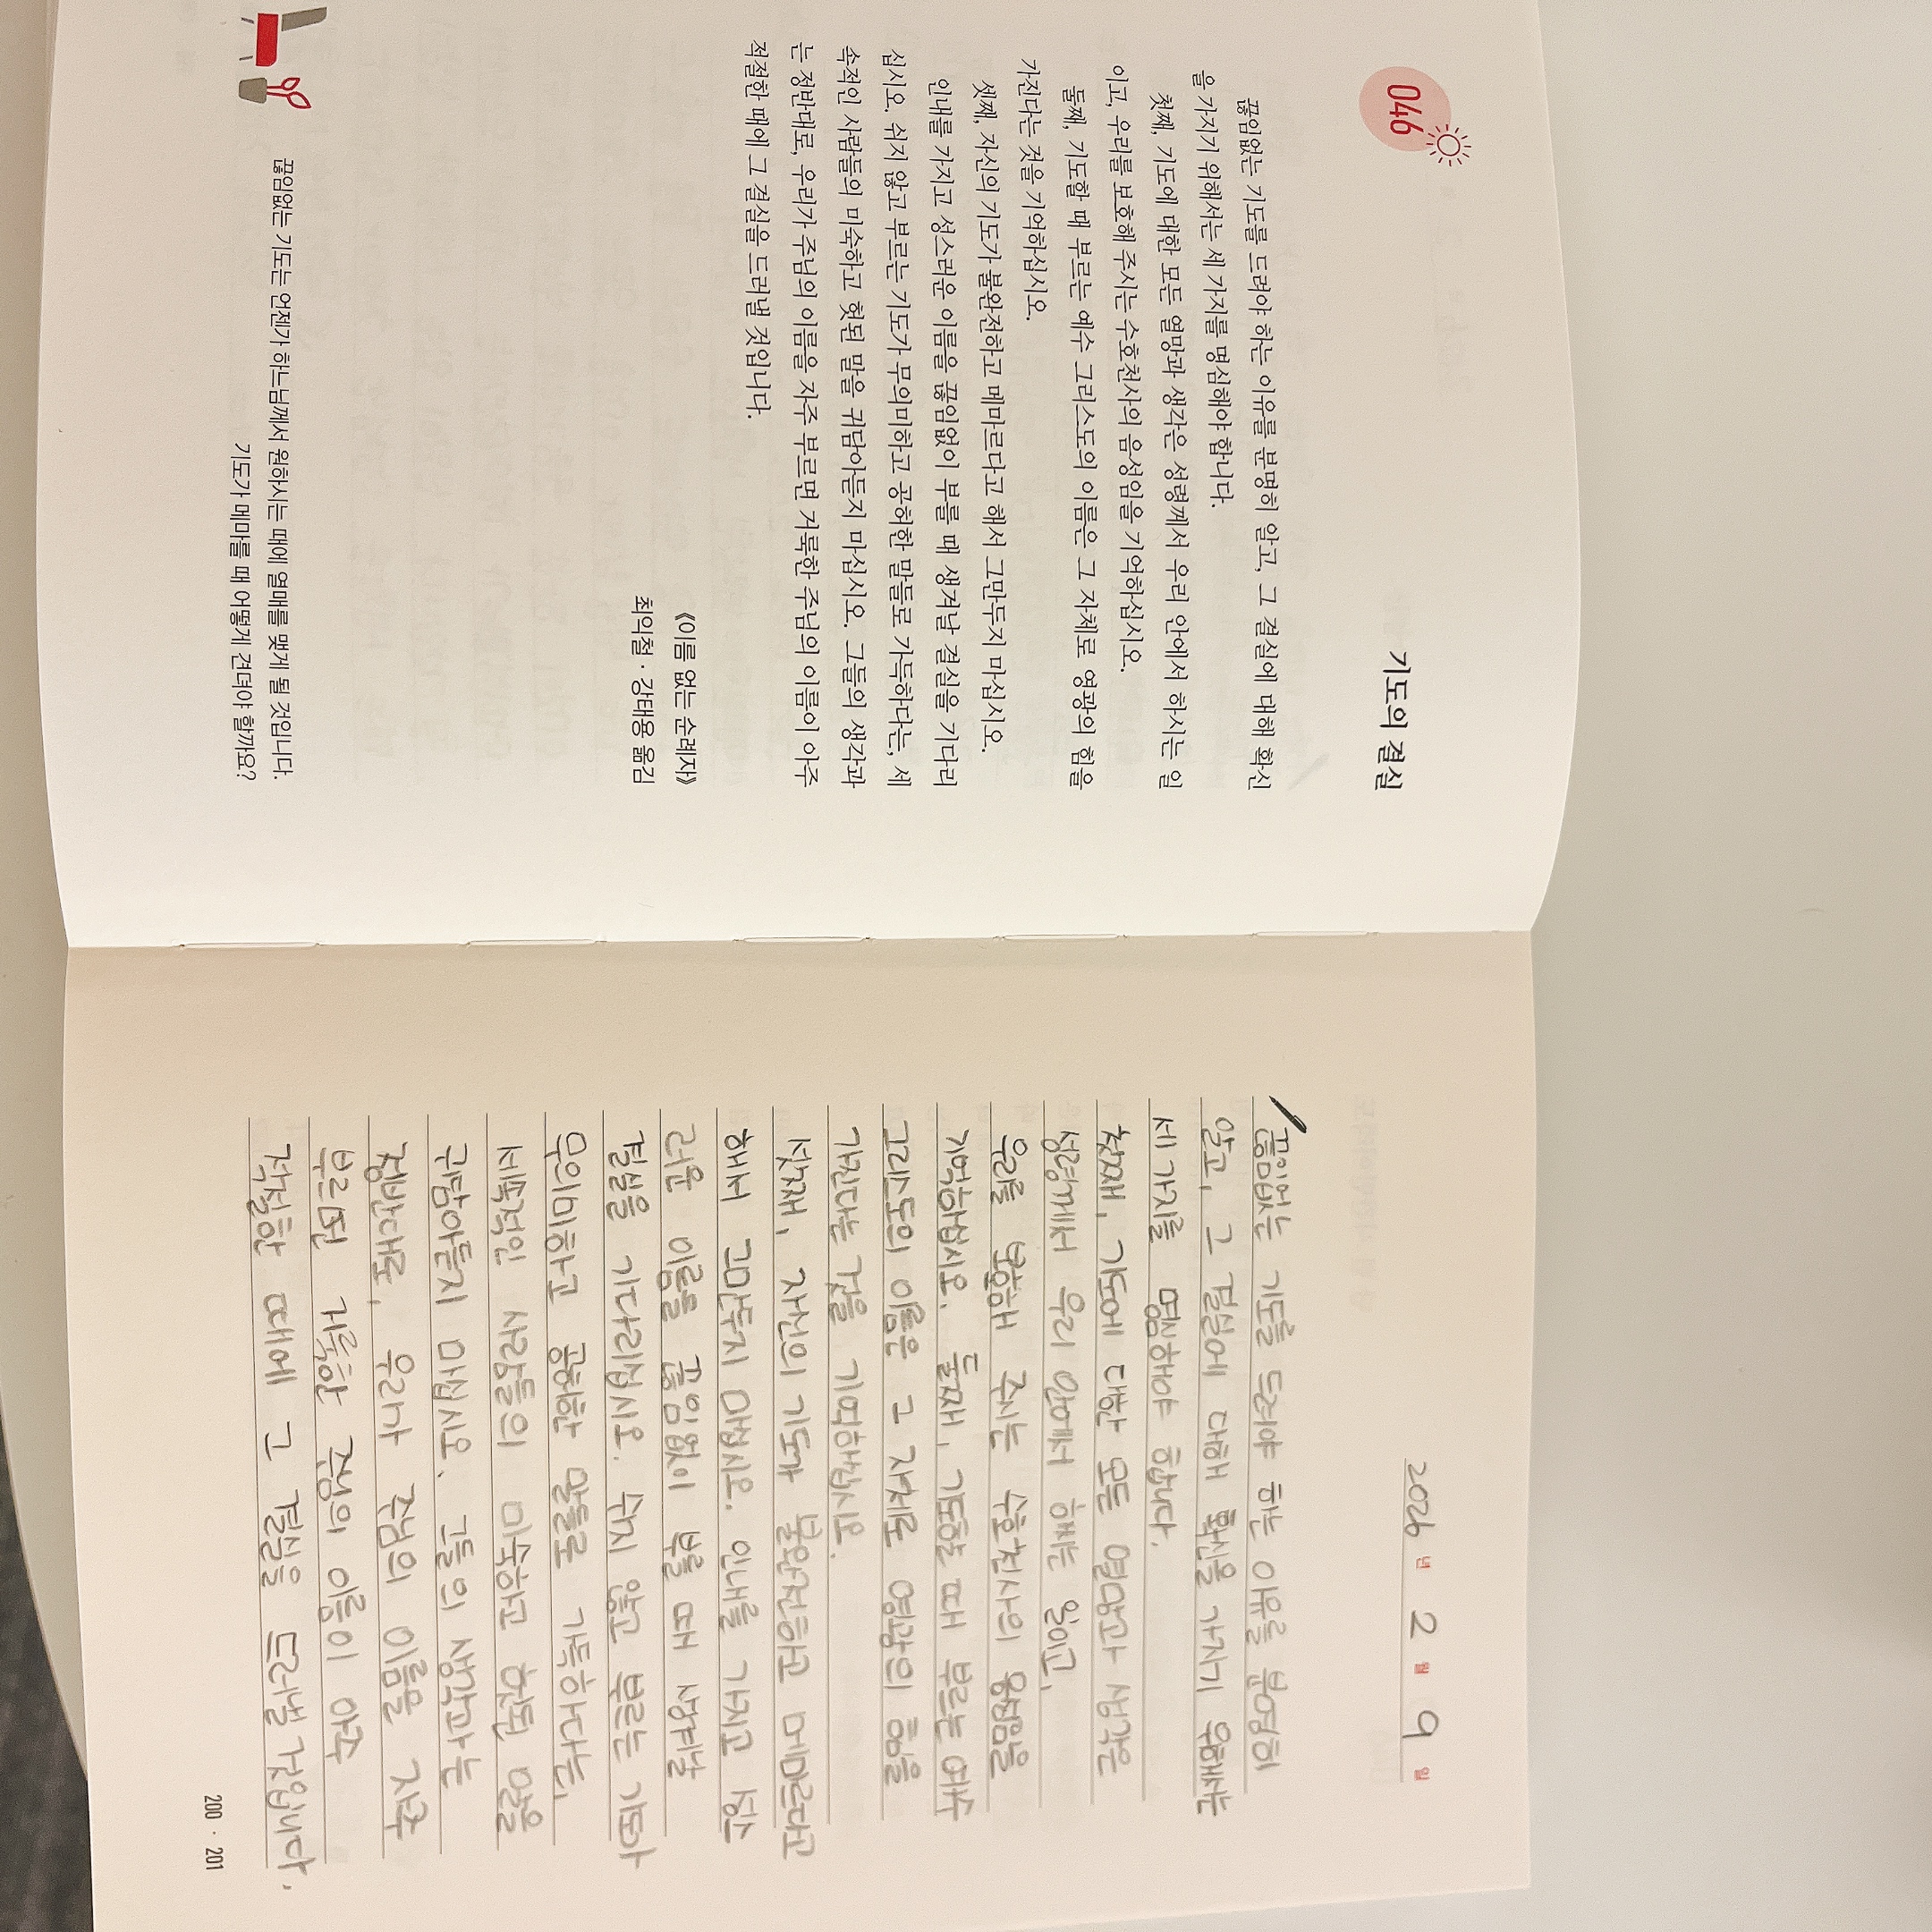 046
기도의 결실
끊임없는 기도를 드려야 하는 이유를 분명히 알고, 그 결실에 대해 확신
을 가지기 위해서는 세 가지를 명심해야 합니다.
첫째, 기도에 대한 모든 열망과 생각은 성령께서 우리 안에서 하시는 일
이고, 우리를 보호해 주시는 수호천사의 음성임을 기억하십시오.
둘째, 기도할 때 부르는 예수 그리스도의 이름은 그 자체로 영광의 힘을
가진다는 것을 기억하십시오.
셋째, 자신의 기도가 불완전하고 메마르다고 해서 그만두지 마십시오.
인내를 가지고 성스러운 이름을 끊임없이 부를 때 생겨날 결실을 기다리
십시오. 쉬지 않고 부르는 기도가 무의미하고 공허한 말들로 가득하다는, 세
속적인 사람들의 미숙하고 헛된 말을 귀담아듣지 마십시오. 그들의 생각과
는 정반대로, 우리가 주님의 이름을 자주 부르면 거룩한 주님의 이름이 아주
적절한 때에 그 결실을 드러낼 것입니다.
《이름 없는 순례자》
최익철 · 강태용 옮김
끊임없는 기도는 언젠가 하느님께서 원하시는 때에 열매를 맺게 될 것입니다.
기도가 메마를 때 어떻게 견뎌야 할까요?
2026 년 2 월 9 일
끊임없는 기도를 드려야 하는 이유를 분명히
알고, 그 결실에 대해 확신을 가지기 위해서는
세 가지를 명심해야 합니다.
첫째, 기도에 대한 모든 열망과 생각은
성령께서 우리 안에서 하시는 일이고,
우리를 보호해 주시는 수호천사의 음성임을
기억하십시오. 둘째, 기도할 때 부르는 예수
그리스도의 이름은 그 자체로 영광의 힘을
가진다는 것을 기억하십시오.
셋째, 자신의 기도가 불완전하고 메마르다고
해서 그만두지 마십시오. 인내를 가지고 성스
러운 이름을 끊임없이 부를 때 생겨날
결실을 기다리십시오. 쉬지 않고 부르는 기도가
무의미하고 공허한 말들로 가득하다는,
세속적인 사람들의 미숙하고 헛된 말을
귀담아듣지 마십시오. 그들의 생각과는
정반대로, 우리가 주님의 이름을 자주
부르면 거룩한 주님의 이름이 아주
적절한 때에 그 결실을 드러낼 것입니다.
200 · 201